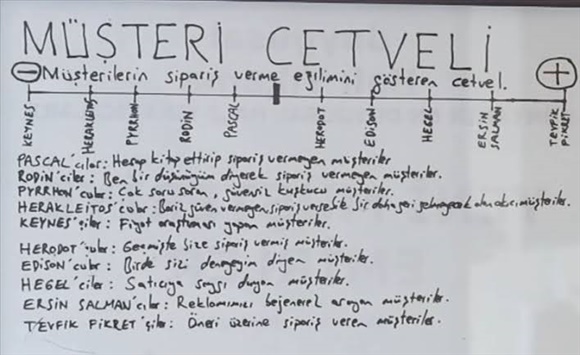 MÜŞTERİ CETVELİ
Müşterilerin sipariş verme eğilimini gösteren cetvel.
KEYNES
HERAKLEITOS
PYRRHON
RODİN
PASCAL
HERODOT
EDİSON
HEGEL
ERSİN SALMAN
TEVFİK FİKRET
PASCAL'cılar: Hesap kitap ettirip sipariş vermeyen müşteriler.
RODİN'ciler: Ben bir düşüneyim diyerek sipariş vermeyen müşteriler.
PYRRHON'cular: Çok soru soran, güvensiz kuşkucu müşteriler.
HERAKLEITOS'cular: güven vermeyen sipariş verse bile bir daha geri müşteriler.
KEYNES'çiler: Fiyat araştırması yapan müşteriler.
HERODOT'çular: Geçmişte bize sipariş vermiş müşteriler.
EDİSON'cular: Birde sizi deneyeyim diyen müşteriler.
HEGEL'ciler: Satıcıya saygı duyan müşteriler.
ERSİN SALMAN'cılar: Reklamımızı beğenerek arayan müşteriler.
TEVFİK FİKRET'çiler: Öneri üzerine sipariş veren müşteriler.